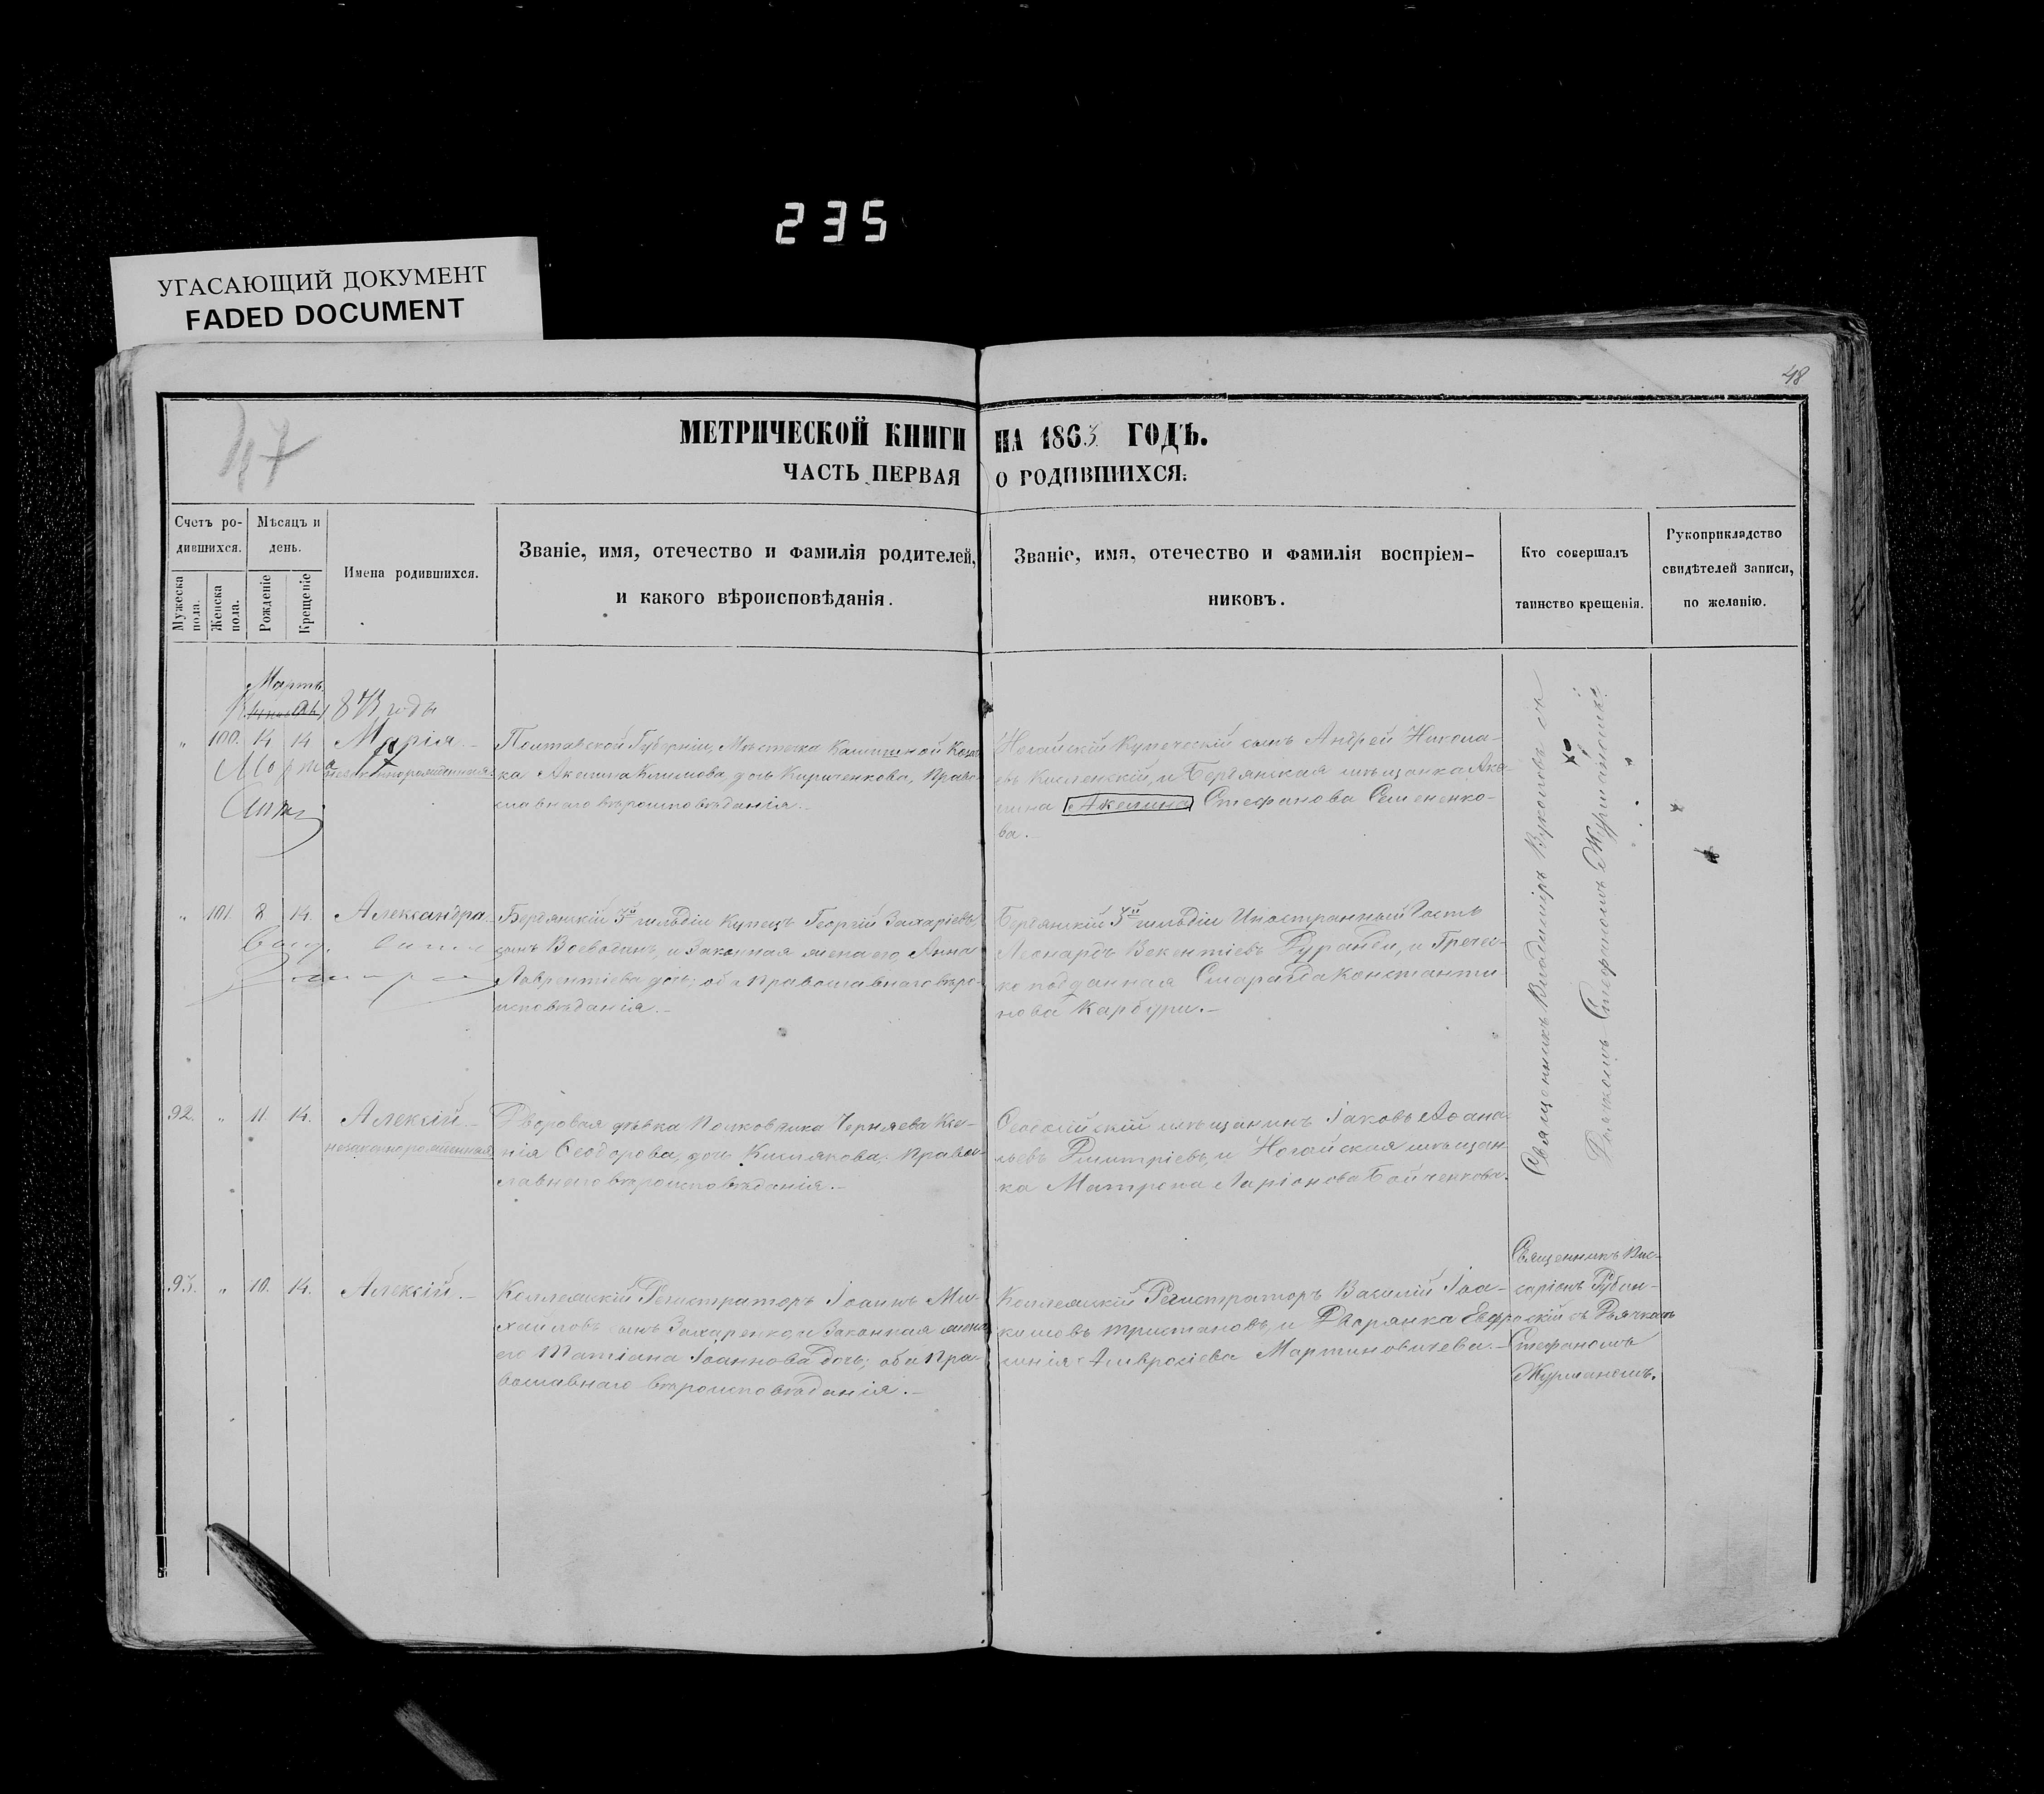 235
УГАСАЮЩИЙ ДОКУМЕНТ
FADED DOCUMENT
48
47
МЕТРИЧЕСКОЙ КНИГИ НА 1863 ГОДЪ.
ЧАСТЬ ПЕРВАЯ О РОДИВШИХСЯ.
Счетъ ро-
дившихся.
Мужеска пола.
Женска пола.
Мѣсяцъ и
день.
Рожденіе
Крещеніе
Имена родившихся.
Званіе, имя, отечество и фамилія родителей,
и какого вѣроисповѣданія.
Званіе, имя, отечество и фамилія воспріем-
никовъ.
Кто совершалъ
таинство крещенія.
Рукоприкладство
свидѣтелей записи,
по желанію.
Мартъ
"
100.
14
14
Марія.
незаконнорожденная
Полтавской Губерніи, Мѣстечка Козач-
ка Акилина Климова дочь Кириченкова, Право-
славнаго вѣроисповѣданія.
Ногайскій Купеческій сынъ Андрей Никола-
евъ и Бердянская мѣщанка Аки-
лина Акилина Стефанова Семененко-
ва.
"
101.
8
14.
Александра.
Бердянскій 3й гильдіи Купецъ Георгій Захаріевъ
сынъ Воеводинъ, и Законная жена его Анна
Лаврентіева дочь; оба Православнаго вѣро-
исповѣданія.
Бердянскій 3й гильдіи Иностранный Гость
Леонардъ Викентіевъ и Гречес-
ко подданная Смарагда Константи-
нова Карбури.
92.
"
11.
14.
Алексій.
незаконнорожденный
Дворовая дѣвка Полковника Черняева Ксе-
нія Ѳеодорова дочь Кислякова, Правос-
лавнаго вѣроисповѣданія.
Ѳеодосійскій мѣщанинъ Іаковъ Аѳана-
сьевъ Дмитріевъ, и Ногайская мѣщан-
ка Матрона Ларіонова Бойченкова.
Священникъ Владиміръ Вуколовъ съ
Дьячкомъ Стефаномъ Журманомъ.
93.
"
10.
14.
Алексій.
Коллежскій Регистраторъ Іоаннъ Ми-
хаиловъ сынъ Захаренко и Законная жена
его Татіана Іоаннова дочь; оба Пра-
вославнаго вѣроисповѣданія.
Коллежскій Регистраторъ Василій Іоа-
кимовъ Тристановъ, и Дворянка Евфро-
синія Амвросіева Мартиновичева.
Священникъ Вис-
саріонъ
съ Дьячкомъ
Стефаномъ
Журманомъ.